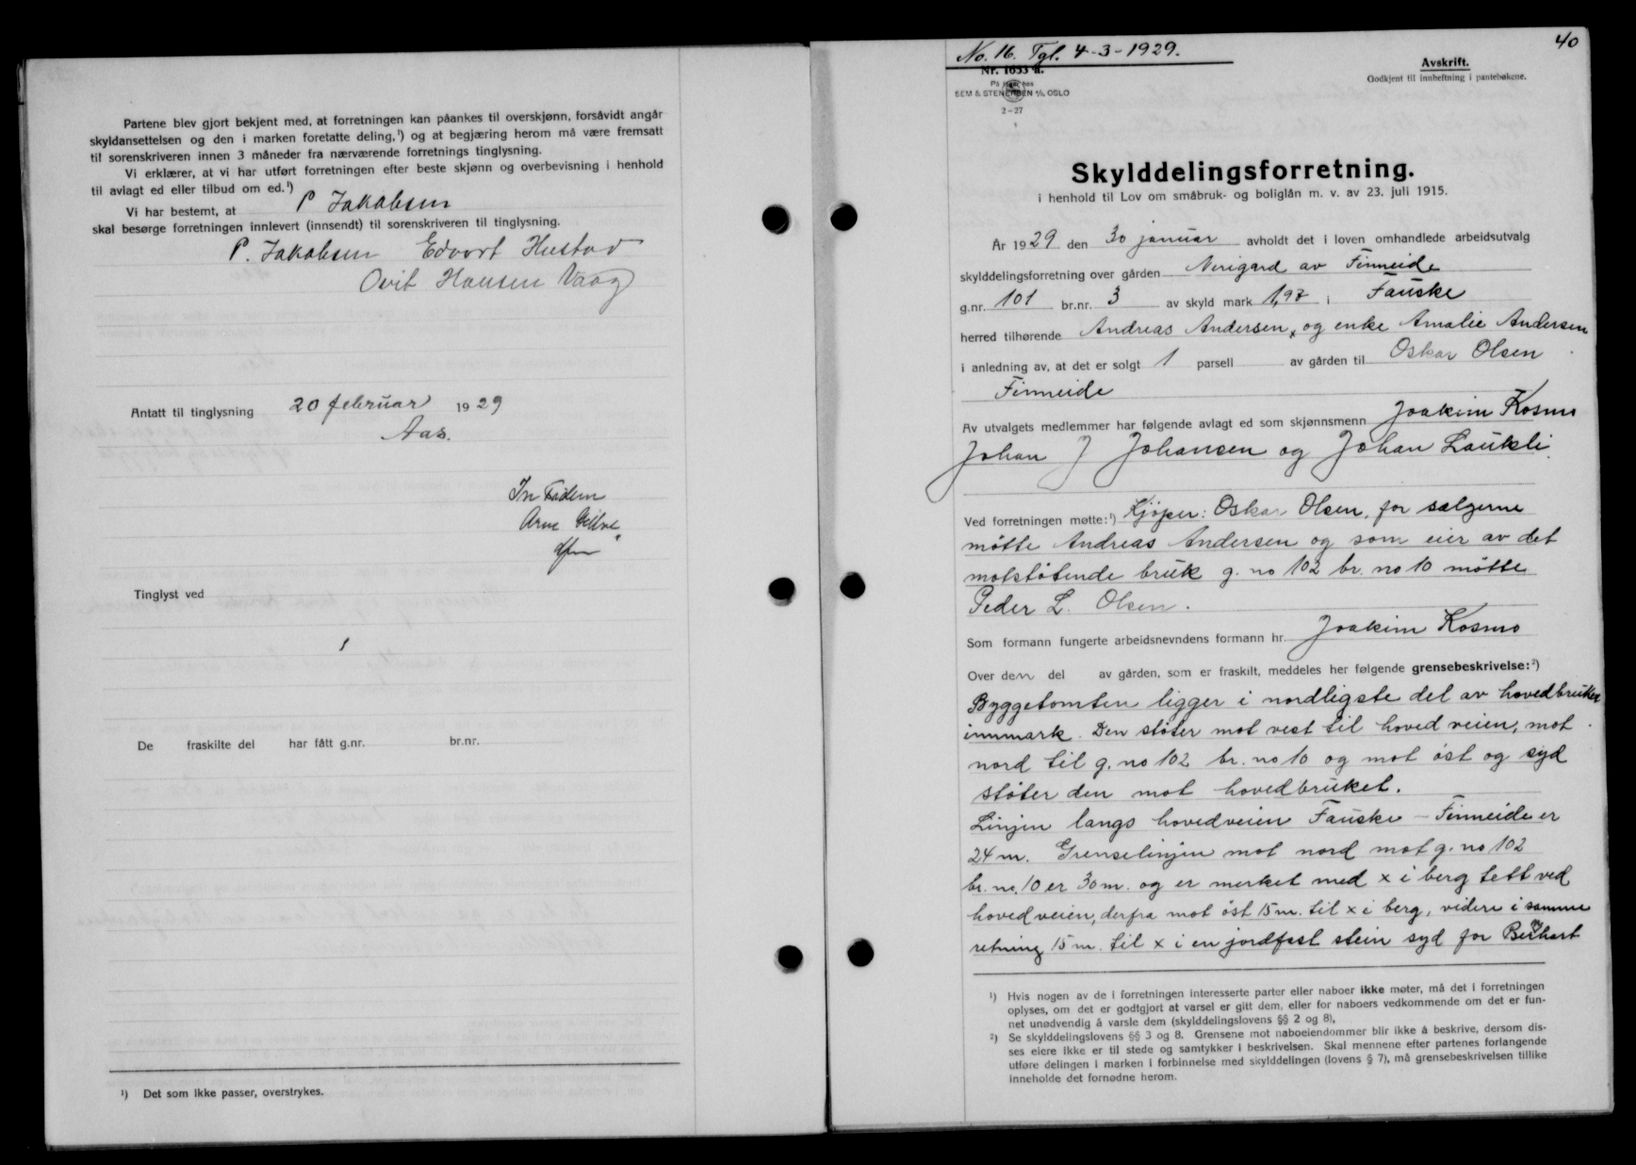 Partene blev gjort bekjent med, at forretningen kan påankes til overskjønn, forsåvidt angår
skyldansettelsen og den i marken foretatte deling,¹) og at begjæring herom må være fremsatt
til sorenskriveren innen 3 måneder fra nærværende forretnings tinglysning.
Vi erklærer, at vi har utført forretningen efter beste skjønn og overbevisning i henhold
til avlagt ed eller tilbud om ed.¹)
Vi har bestemt, at P Jakobsen
skal besørge forretningen innlevert (innsendt) til sorenskriveren til tinglysning.
P. Jakobsen Edvart Hustad
Hansen Vaag
Antatt til tinglysning 20 februar 1929
Aas.
Arne
Tinglyst ved
De fraskilte del har fått g.nr. br.nr.
¹) Det som ikke passer, overstrykes.
40
No. 16. Tgl. 4-3-1929.
Nr. 1653 a.
SEM & STENERSEN A/S, OSLO
2-27
Avskrift.
Godkjent til innheftning i pantebøkene.
Skylddelingsforretning.
i henhold til Lov om småbruk- og boliglån m. v. av 23. juli 1915.
År 1929 den 30 januar avholdt det i loven omhandlede arbeidsutvalg
skylddelingsforretning over gården Nerigard av Finneide
g.nr. 101 br.nr. 3 av skyld mark 1,97 i Fauske
herred tilhørende Andreas Andersen, og enke Amalie Andersen
i anledning av, at det er solgt 1 parsell av gården til Oskar Olsen
Finneide
Av utvalgets medlemmer har følgende avlagt ed som skjønnsmenn Joakim Kosmo
Johan J Johansen og Johan Laukli.
Ved forretningen møtte:¹) Kjöper: Oskar Olsen, for sælgerne
mötte Andreas Andersen og som eier av det
motstötende bruk g. no 102 br. no 10 mötte
Peder L. Olsen.
Som formann fungerte arbeidsnevndens formann hr. Joakim Kosmo
Over den del av gården, som er fraskilt, meddeles her følgende grensebeskrivelse:²)
Byggetomten ligger i nordligste del av hovedbruket
innmark. Den stöter mot vest til hovedveien, mot
nord til g. no 102 br. no 10 og mot öst og syd
stöter den mot hovedbruket.
Linjen langs hovedveien Fauske - Finneide er
24 m. Grenselinjen mot nord mot g. no 102
br. no. 10 er 30 m. og er merket med x i berg tett ved
hovedveien, derfra mot öst 15 m. til x i berg, videre i samme
retning 15 m. til x i en jordfast stein syd for
¹) Hvis nogen av de i forretningen interesserte parter eller naboer ikke møter, må det i forretningen
oplyses, om det er godtgjort at varsel er gitt dem, eller for naboers vedkommende om det er fun-
net unødvendig å varsle dem (skylddelingslovens §§ 2 og 8).
²) Se skylddelingslovens §§ 3 og 8. Grensene mot naboeiendommer blir ikke å beskrive, dersom dis-
ses eiere ikke er til stede og samtykker i beskrivelsen. Skal mennene efter partenes forlangende
utføre delingen i marken i forbinnelse med skylddelingen (lovens § 7), må grensebeskrivelsen tillike
inneholde det fornødne herom.